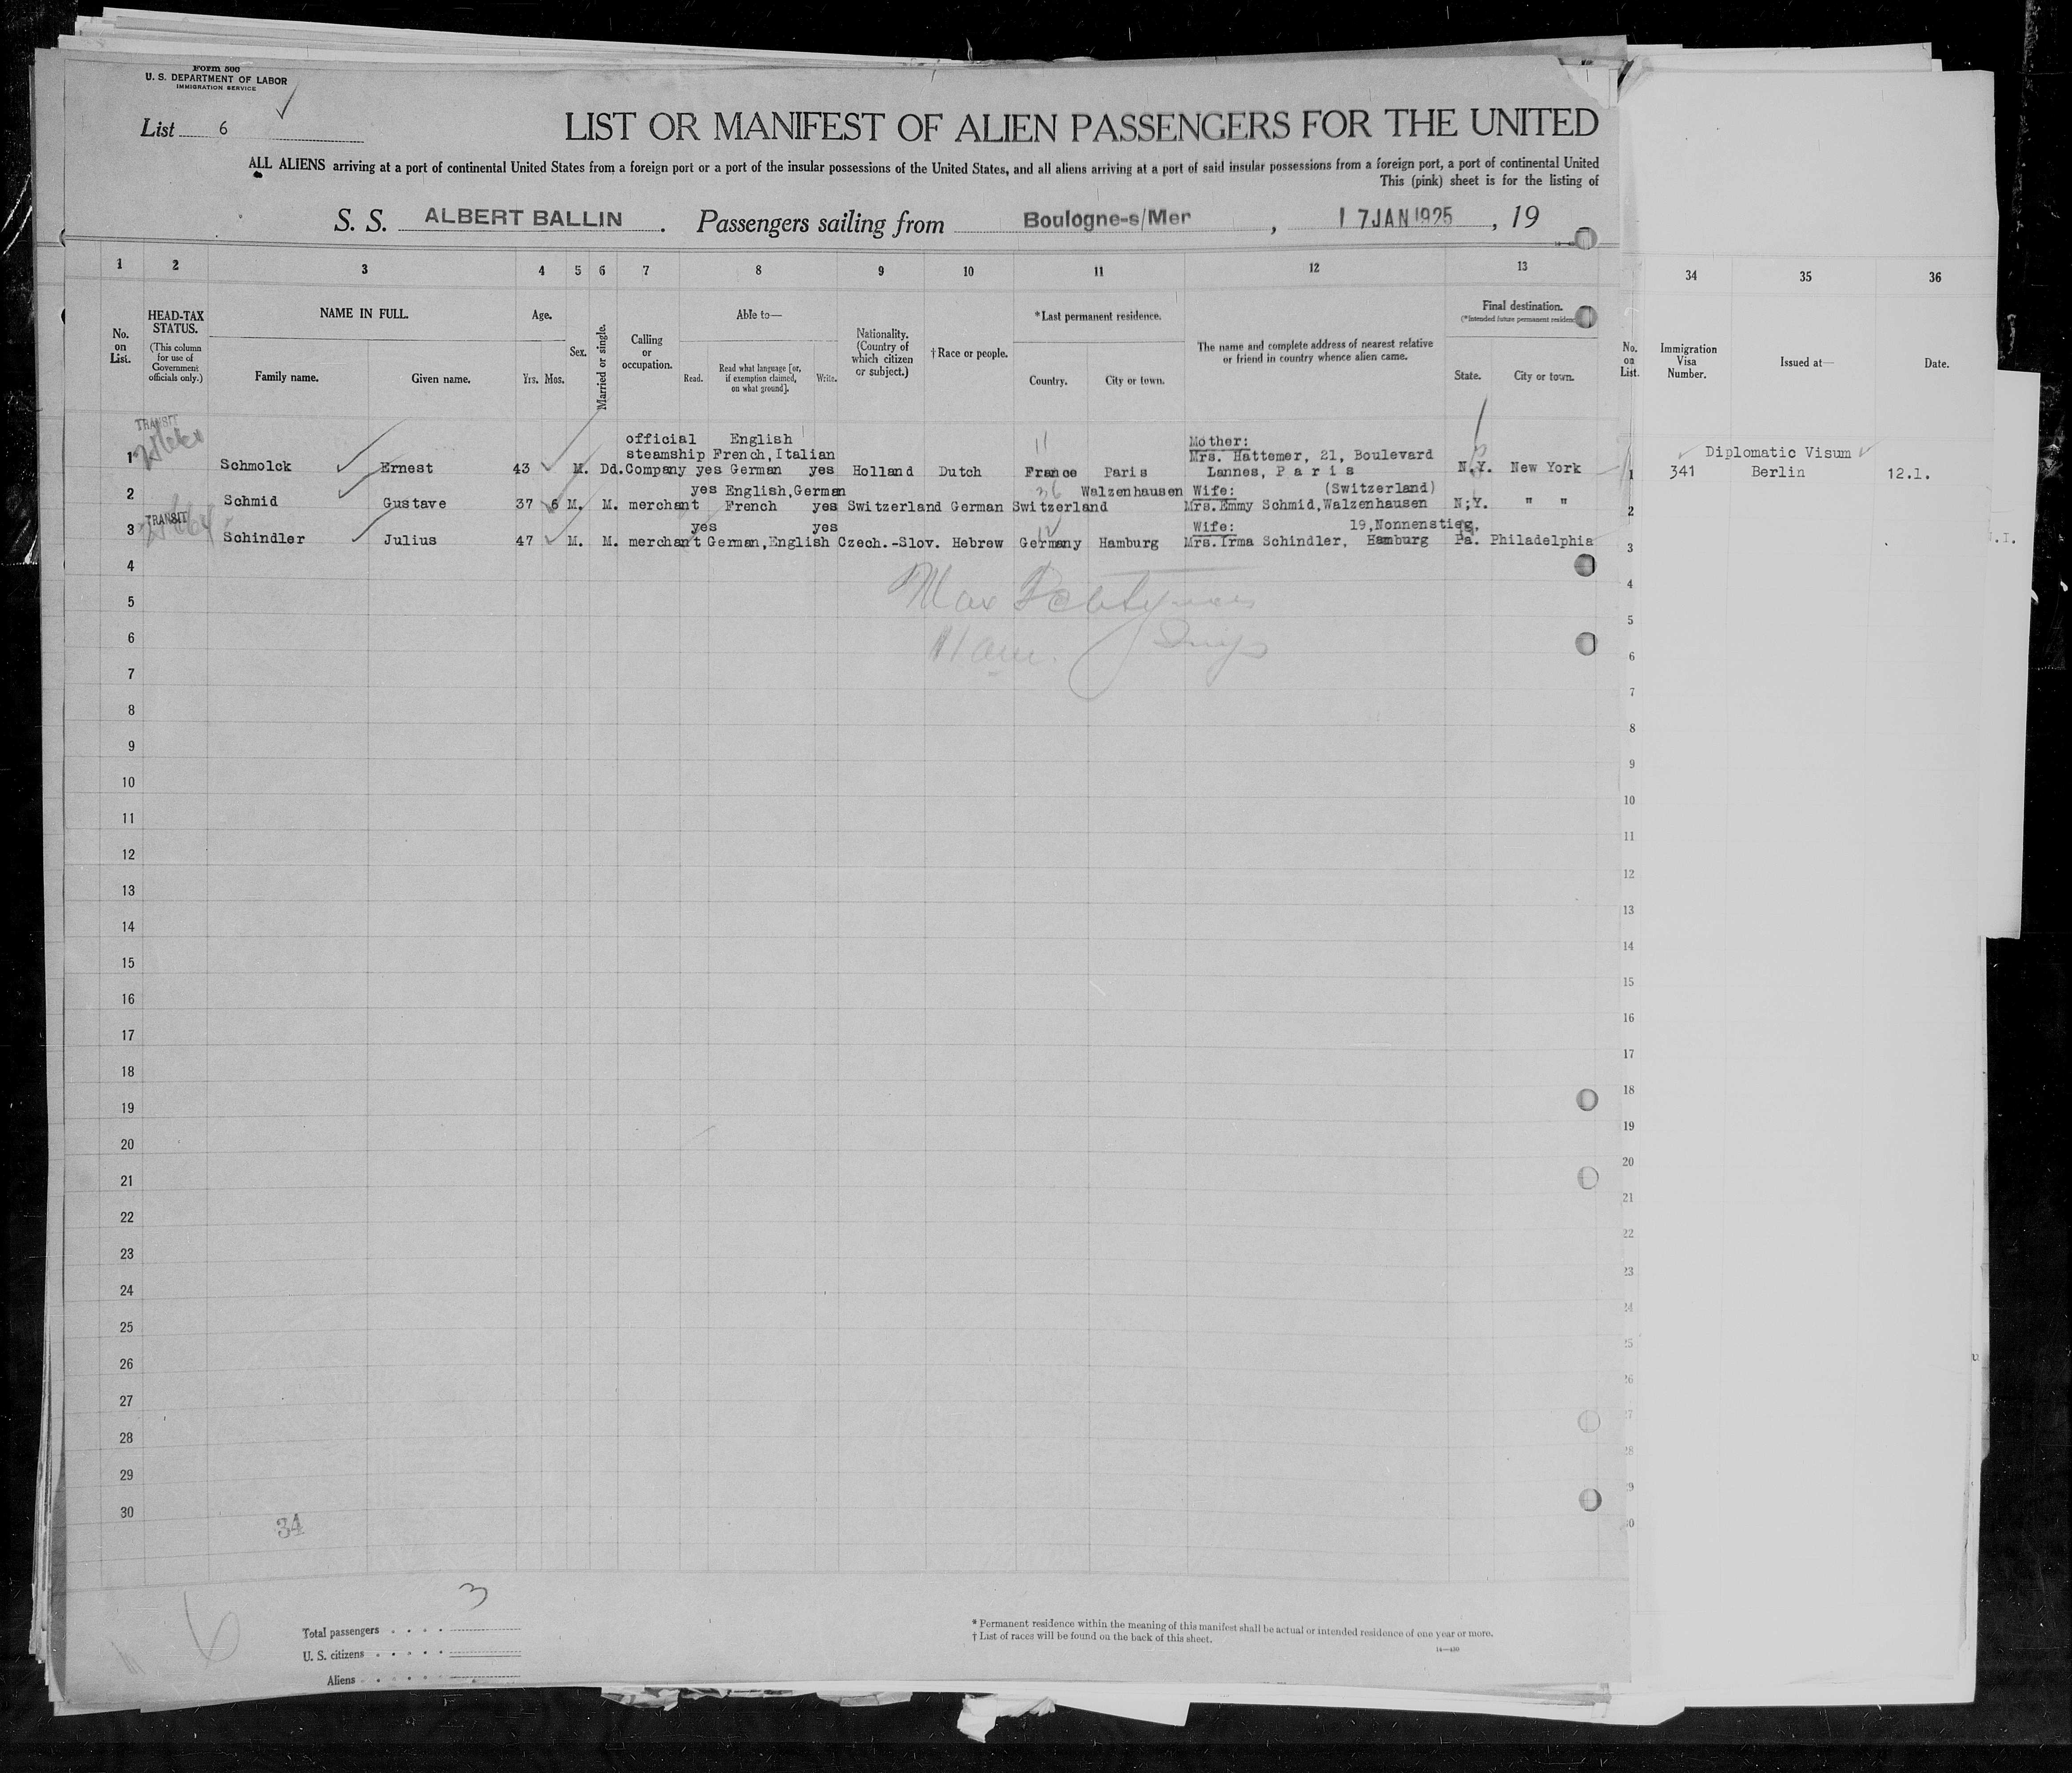 Form 500
U. S. DEPARTMENT OF LABOR
IMMIGRATION SERVICE
List 6
LIST OR MANIFEST OF ALIEN PASSENGERS FOR THE UNITED
ALL ALIENS arriving at a port of continental United States from a foreign port or a port of the insular possessions of the United States, and all aliens arriving at a port of said insular possessions from a foreign port, a port of continental United
This (pink) sheet is for the listing of
S. S. ALBERT BALLIN. Passengers sailing from Boulogne-s/Mer, 17 JAN 1925, 19
1 2 3 4 5 6 7 8 9 10 11 12 13 34 35 36
No. on List.
HEAD-TAX STATUS.
(This column for use of Government officials only.)
NAME IN FULL.
Family name. Given name.
Age.
Yrs. Mos.
Sex.
Married or single.
Calling or occupation.
Able to—
Read. Read what language [or, if exemption claimed, on what ground]. Write.
Nationality. (Country of which citizen or subject.)
†Race or people.
*Last permanent residence.
Country. City or town.
The name and complete address of nearest relative or friend in country whence alien came.
Final destination.
(*Intended future permanent residence
State. City or town.
No. on List.
Immigration Visa Number.
Issued at—
Date.
TRANSIT
official English Mother:
steamship French,Italian Mrs. Hattemer, 21, Boulevard Diplomatic Visum
1 Schmolck Ernest 43 M. Dd. Company yes German yes Holland Dutch France Paris Lannes, P a r i s N.Y. New York 1 341 Berlin 12.1.
yes English,German Walzenhausen Wife: (Switzerland)
2 Schmid Gustave 37 6 M. M. merchant French yes Switzerland German Switzerland Mrs.Emmy Schmid,Walzenhausen N;Y. " " 2
TRANSIT
yes yes Wife: 19,Nonnenstieg,
3 Schindler Julius 47 M. M. merchant German,English Czech.-Slov. Hebrew Germany Hamburg Mrs.Irma Schindler, Hamburg Pa. Philadelphia 3
4 4
5 5
6 6
7 7
8 8
9 9
10 10
11 11
12 12
13 13
14 14
15 15
16 16
17 17
18 18
19 19
20 20
21 21
22 22
23 23
24 24
25 25
26 26
27 27
28 28
29 29
30 30
34
6
Total passengers 3
U. S. citizens
Aliens
* Permanent residence within the meaning of this manifest shall be actual or intended residence of one year or more.
† List of races will be found on the back of this sheet.